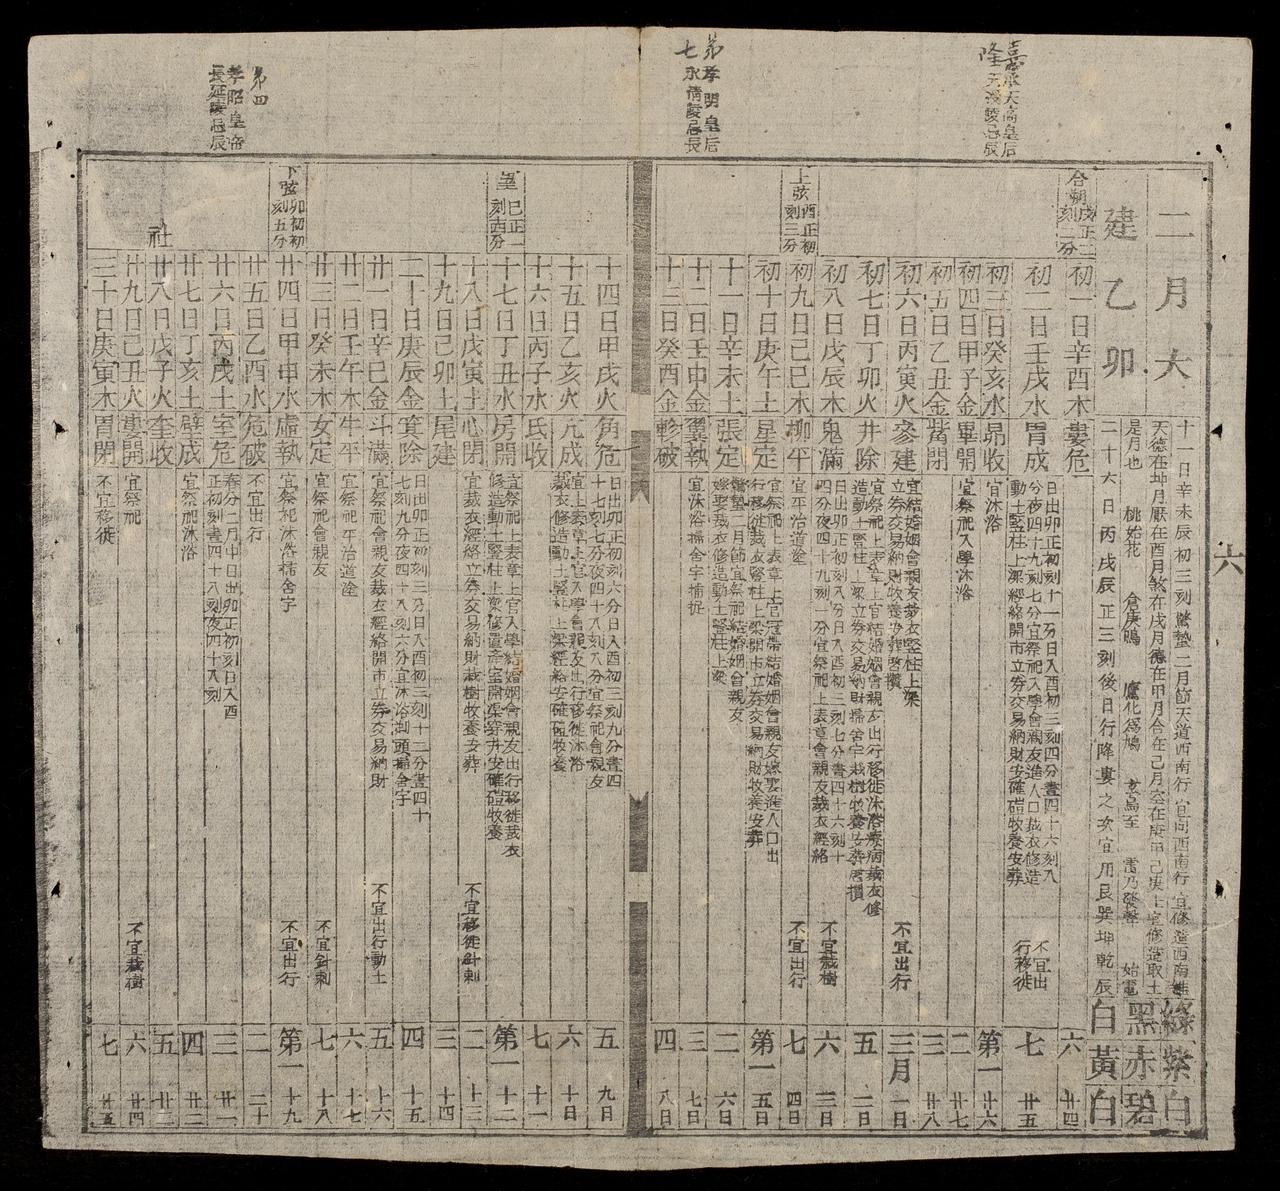 嘉隆 承天高皇后
天授陵忌辰
第七 孝明皇后
永清陵忌辰
第四 孝昭皇帝
長延陵忌辰
六
二月大
建乙卯
十一日辛未辰初三刻驚蟄二月節天道西南行宜向西南行宜修造西南維
天德在坤月厭在酉月煞在戌月德在甲月合在己月空在庚甲己庚上宜修造取土
是月也 桃始花 倉庚鳴 鷹化為鳩 玄鳥至 雷乃發聲 始電
二十六日丙戌辰正三刻後日行降婁之次宜用艮巽坤乾辰
綠紫白
黑赤碧
白黃白
合朔戌正二刻二分
初一日辛酉木婁危 六 廿四
初二日壬戌水胃成 日出卯正初刻十一分日入酉初三刻四分晝四十六刻八分夜四十九刻七分宜祭祀入學會親友進人口裁衣修造動土豎柱上梁經絡開市立券交易納財安確磑牧養安葬 不宜出行移徙 七 廿五
初三日癸亥水昴收 宜沐浴 第一 廿六
初四日甲子金畢開 宜祭祀入學沐浴 二 廿七
初五日乙丑金觜閉 三 廿八
初六日丙寅火參建 宜結婚姻會親友裁衣豎柱上梁立券交易納財牧養安葬啓攢 不宜出行 三月 一日
初七日丁卯火井除 宜祭祀上表章上官結婚姻會親友出行移徙沐浴療病裁衣修造動土豎柱上梁立券交易納財掃舍宇栽樹牧養安葬啓攢 五 二日
初八日戊辰木鬼滿 日出卯正初刻八分日入酉初三刻七分晝四十六刻十四分夜四十九刻一分宜祭祀上表章會親友裁衣經絡 不宜栽樹 六 三日
上弦酉正初刻三分
初九日己巳木柳平 宜平治道塗 不宜出行 七 四日
初十日庚午土星定 宜祭祀上表章上官冠帶結婚姻會親友嫁娶進人口出行移徙裁衣豎柱上梁開市立券交易納財牧養安葬 第一 五日
十一日辛未土張定 驚蟄二月節宜祭祀結婚姻會親友嫁娶裁衣修造動土豎柱上梁 二 六日
十二日壬申金翼執 宜沐浴掃舍宇捕捉 三 七日
十三日癸酉金軫破 四 八日
十四日甲戌火角危 日出卯正初刻六分日入酉初三刻九分晝四十七刻七分夜四十八刻八分宜祭祀會親友 五 九日
十五日乙亥火亢成 宜上表章上官入學會親友出行移徙沐浴裁衣修造動土豎柱上梁經絡安確磑牧養 六 十日
十六日丙子水氐收 七 十一
望巳正一刻十四分
十七日丁丑水房開 宜祭祀上表章上官入學結婚姻會親友出行移徙裁衣修造動土豎柱上梁修置產室開渠穿井安確磑牧養 第一 十二
十八日戊寅土心閉 宜裁衣經絡立券交易納財栽樹牧養安葬 不宜移徙針刺 二 十三
十九日己卯土尾建 三 十四
二十日庚辰金箕除 日出卯正初刻三分日入酉初三刻十二分晝四十七刻九分夜四十八刻六分宜沐浴剃頭掃舍宇 四 十五
廿一日辛巳金斗滿 宜祭祀會親友裁衣經絡開市立券交易納財 不宜出行動土 五 十六
廿二日壬午木牛平 宜祭祀平治道塗 六 十七
廿三日癸未木女定 宜祭祀會親友 不宜針刺 七 十八
下弦卯初初刻五分
廿四日甲申水虛執 宜祭祀沐浴掃舍宇 不宜出行 第一 十九
廿五日乙酉水危破 不宜出行 二 二十
廿六日丙戌土室危 春分二月中日出卯正初刻日入酉正初刻晝四十八刻夜四十八刻 三 廿一
廿七日丁亥土壁成 宜祭祀沐浴 四 廿二
社
廿八日戊子火奎收 五 廿三
廿九日己丑火婁開 宜祭祀 不宜栽樹 六 廿四
三十日庚寅木胃閉 不宜移徙 七 廿五